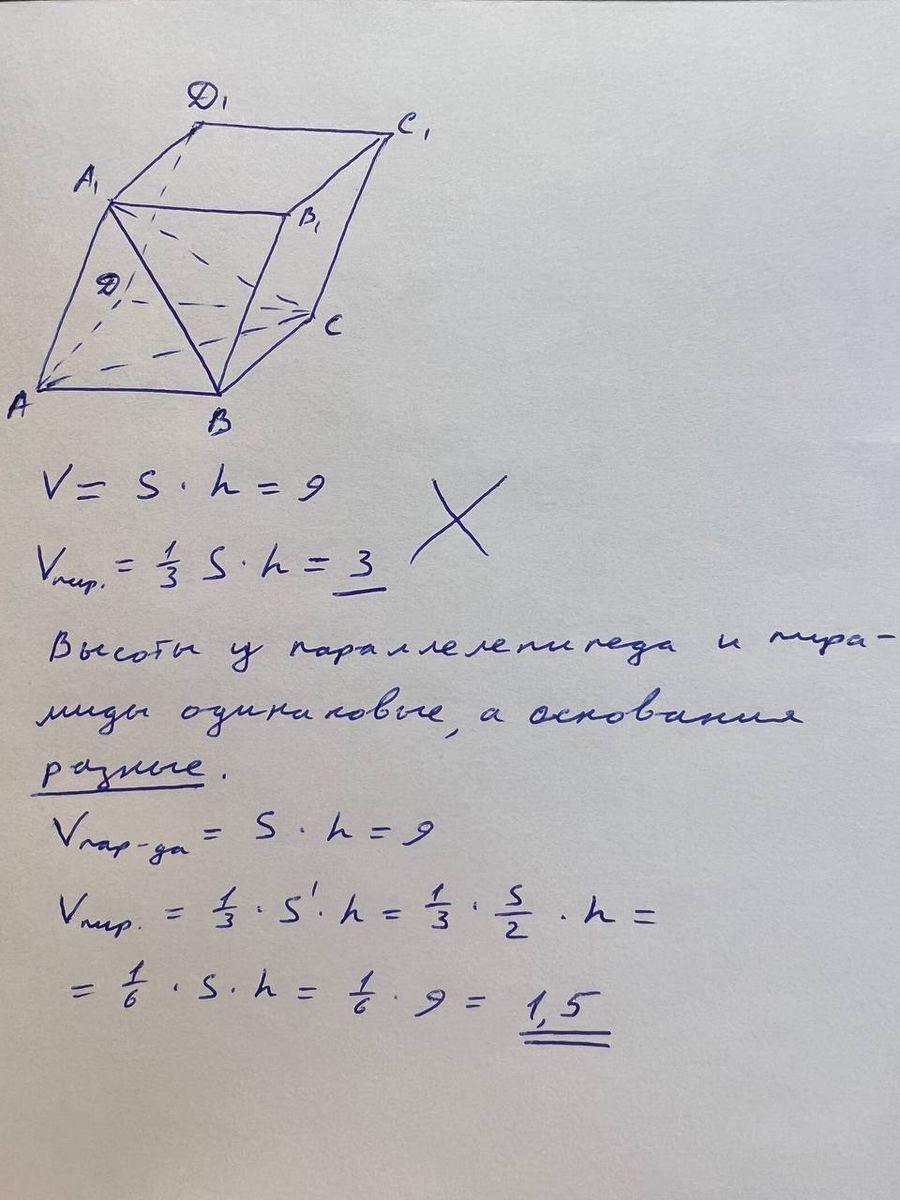 Д₁
C₁
A₁
B₁
Д
C
A
B
V = S · h = 9
Vпир. = 1/3 S · h = 3
Высоты у параллелепипеда и пира-
миды одинаковые, а основания
разные.
Vпар-да = S · h = 9
Vпир. = 1/3 · S' · h = 1/3 · S/2 · h =
= 1/6 · S · h = 1/6 · 9 = 1,5